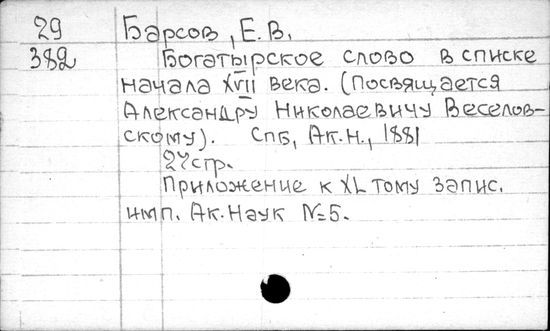 29 Барсов, Е. В.
382 Богатырское слово в списке
начала XVII века. (Посвящается
Александру Николаевичу Веселов-
скому). Спб, Ак. Н., 1881
27 стр.
Приложение к XL тому запис.
имп. Ак. Наук №5.